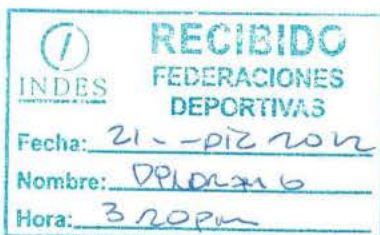 RECIBIDO
INDES
FEDERACIONES
DEPORTIVAS
Fecha: 21 - DIC 2022
Nombre:
Hora: 3 20pm